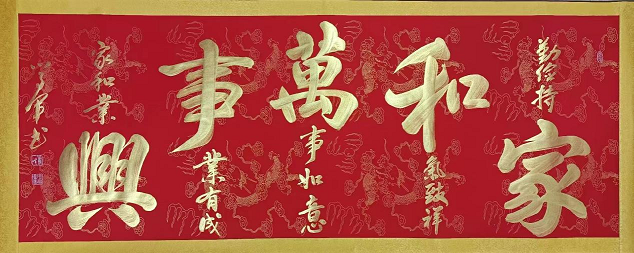 勤俭持家
和氣致祥
萬事如意
事業有成
家和業興
军书